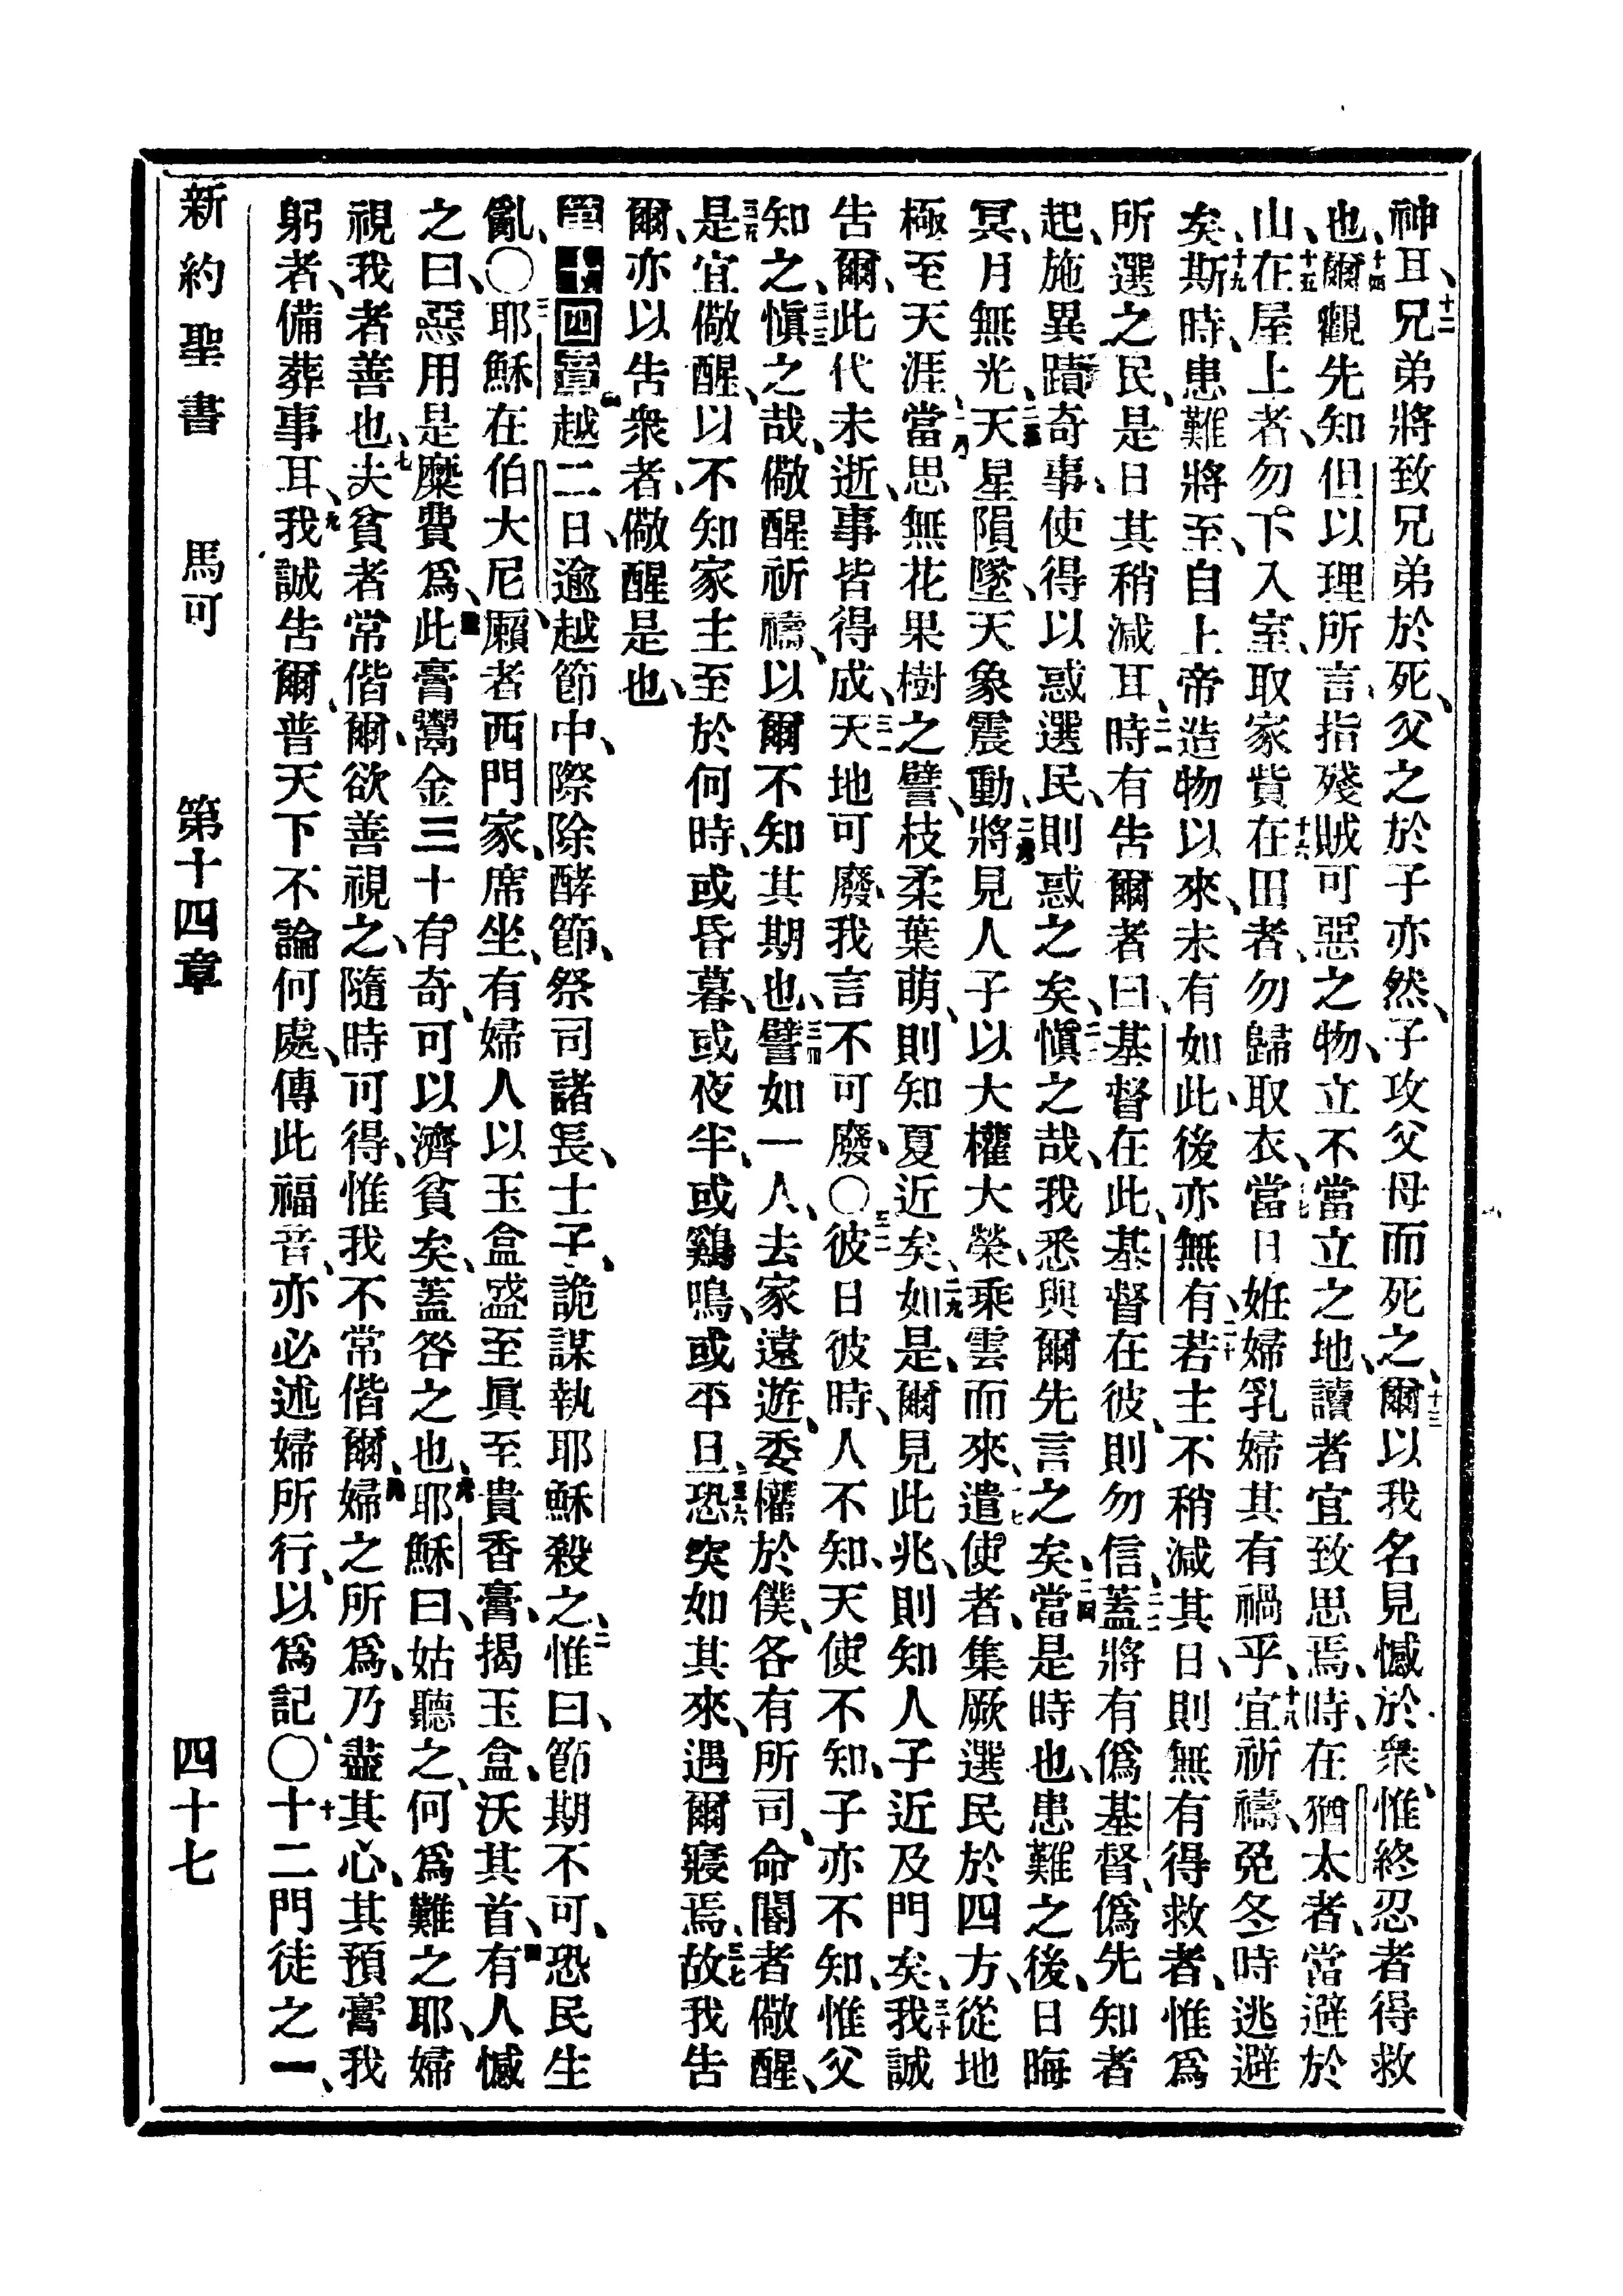 神耳、十二兄弟將致兄弟於死、父之於子亦然、子攻父母而死之、十三爾以我名見憾於衆、惟終忍者得救
也、十四爾觀先知但以理所言、指殘賊可惡之物、立不當立之地、讀者宜致思焉、時在猶太者、當避於
山、十五在屋上者、勿下入室、取家貲、十六在田者、勿歸取衣、十七當日姙婦乳婦其有禍乎、十八宜祈禱、免冬時逃避
矣、十九斯時、患難將至、自上帝造物以來、未有如此、後亦無有、二十若主不稍減其日、則無有得救者、惟爲
所選之民、是日其稍減耳、二一時有告爾者曰、基督在此、基督在彼、則勿信、二二蓋將有僞基督、僞先知者
起、施異蹟奇事、使得以惑選民、則惑之矣、二三愼之哉、我悉與爾先言之矣、二四當是時也、患難之後、日晦
冥、月無光、二五天星隕墜、天象震動、二六將見人子以大權大榮、乘雲而來、二七遣使者、集厥選民於四方、從地
極至天涯、二八當思無花果樹之譬、枝柔葉萌、則知夏近矣、二九如是、爾見此兆、則知人子近及門矣、三十我誠
告爾、此代未逝、事皆得成、三一天地可廢、我言不可廢、〇三二彼日彼時、人不知、天使不知、子亦不知、惟父
知之、三三愼之哉、儆醒祈禱、以爾不知其期也、三四譬如一人、去家遠遊、委權於僕、各有所司、命閽者儆醒、
三五是宜儆醒、以不知家主至於何時、或昏暮、或夜半、或鷄鳴、或平旦、三六恐突如其來、遇爾寢焉、三七故我告
爾、亦以告衆者、儆醒是也、
第十四章一越二日、逾越節中、際除酵節、祭司諸長、士子、詭謀執耶穌殺之、二惟曰、節期不可、恐民生
亂、〇三耶穌在伯大尼、癩者西門家、席坐、有婦人以玉盒盛至眞至貴香膏、揭玉盒、沃其首、四有人憾
之曰、惡用是糜費爲、五此膏鬻金三十有奇、可以濟貧矣、蓋咎之也、六耶穌曰、姑聽之、何爲難之耶、婦
視我者善也、七夫貧者常偕爾、欲善視之、隨時可得、惟我不常偕爾、八婦之所爲、乃盡其心、其預膏我
躬者、備葬事耳、九我誠告爾、普天下不論何處、傳此福音、亦必述婦所行、以爲記、〇十十二門徒之一、
新約聖書 馬可 第十四章 四十七